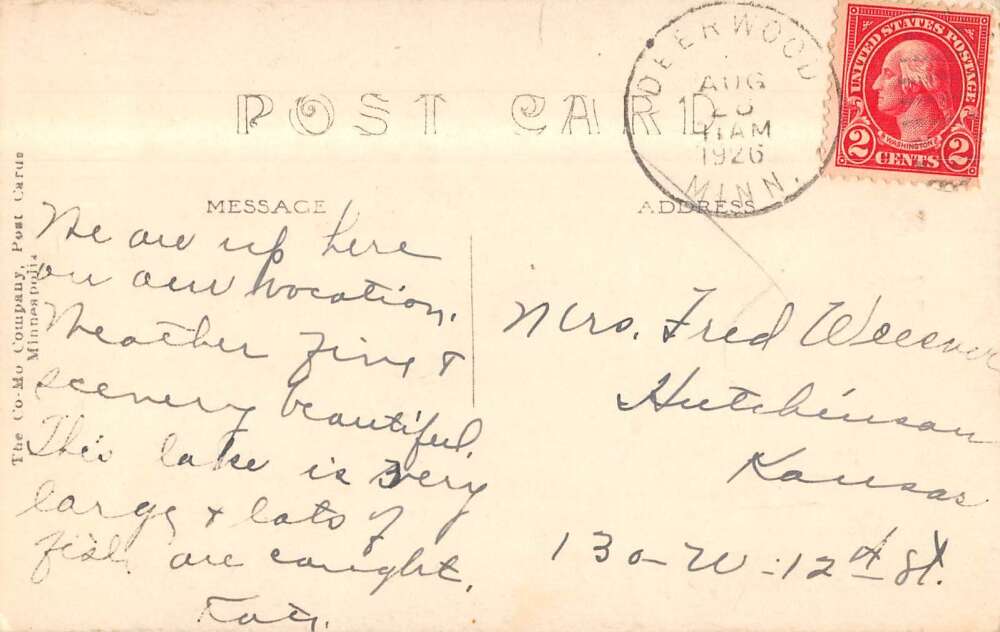 POST CARD
DEERWOOD
AUG
11 AM
1926
MINN.
UNITED STATES POSTAGE
WASHINGTON
2 CENTS 2
MESSAGE
ADDRESS
The Co-Mo Company, Post Cards
Minneapolis
We are up here
on our vocation.
Weather fine &
scenery beautiful.
This lake is very
large & lots of
fish are caught.
Mrs. Fred
Hutchinson
Kansas
130-W-12th St.